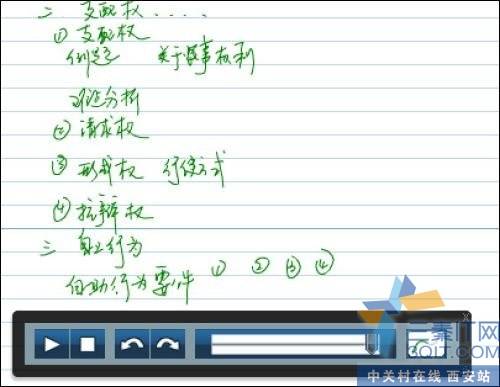 二 支配权 . . . .
① 支配权
例题 关于民事权利
理论分析
② 请求权
③ 形成权 行使方式
④ 抗辩权
三 自止行为
自助行为要件 ① ② ③ ④
三秦IT网
3QIT.COM
中关村在线 西安站